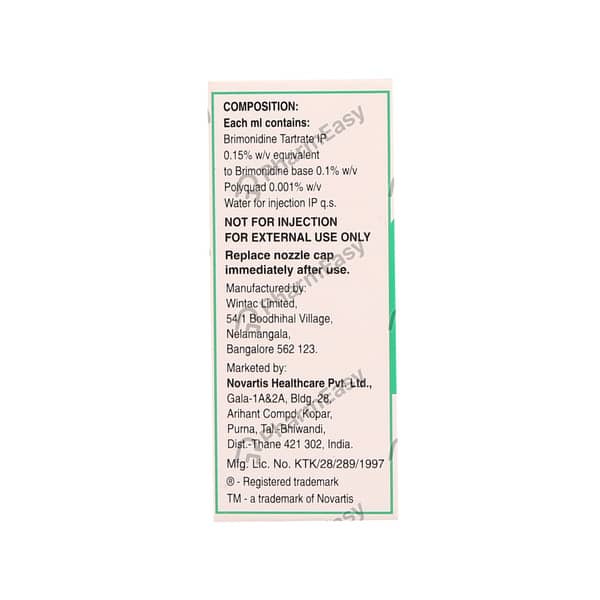 COMPOSITION:
Each ml contains:
Brimonidine Tartrate IP
0.15% w/v equivalent
to Brimonidine base 0.1% w/v
Polyquad 0.001% w/v
Water for injection IP q.s.
NOT FOR INJECTION
FOR EXTERNAL USE ONLY
Replace nozzle cap
immediately after use.
Manufactured by:
Wintac Limited,
54/1 Boodhihal Village,
Nelamangala,
Bangalore 562 123.
Marketed by:
Novartis Healthcare Pvt. Ltd.,
Gala-1A&2A, Bldg. 28,
Arihant Compd, Kopar,
Purna, Tal.-Bhiwandi,
Dist.-Thane 421 302, India.
Mfg. Lic. No. KTK/28/289/1997
® - Registered trademark
TM - a trademark of Novartis
PharmEasy
PharmEasy
PharmEasy
PharmEasy